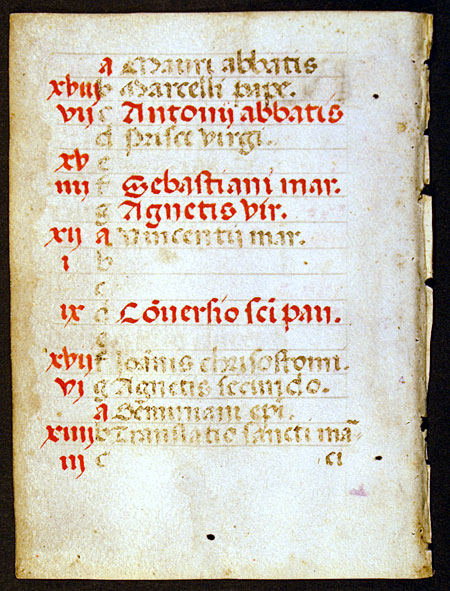 a Mauri abbatis
xviij b Marcelli pape.
vij c Antonij abbatis
d Prisce virgi.
xv e
iiij f Sebastiani mar.
g Agnetis vir.
xij a Vincentij mar.
i b
c
ix d Cōversio sc̄i pau.
e
xvij f Joānis chrisostomi.
vi g Agnetis secundo.
a Gēminiani ep̄i.
xiiij b Translatio sancti ma᷉
iij c ci